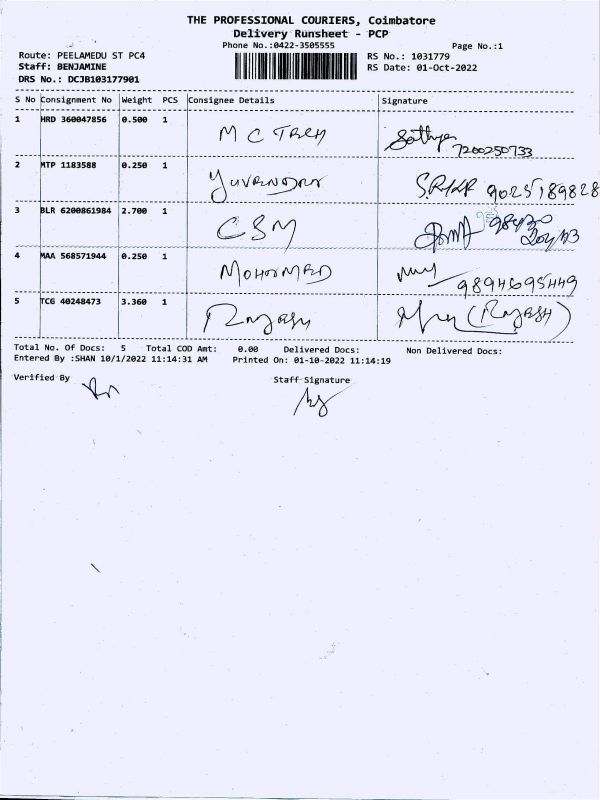 THE PROFESSIONAL COURIERS, Coimbatore
Delivery Runsheet - PCP
Phone No.:0422-3505555 Page No.:1
Route: PEELAMEDU ST PC4 RS No.: 1031779
Staff: BENJAMINE RS Date: 01-Oct-2022
DRS No.: DCJB103177901
S No Consignment No Weight PCS Consignee Details Signature
1 HRD 360047856 0.500 1 M C TECH Sathya
7200250733
2 MTP 1183588 0.250 1 9025189828
3 BLR 6200861984 2.700 1 CSM
4 MAA 568571944 0.250 1 MOHAMMED
9894695449
5 TCG 40248473 3.360 1 Rajesh (RAJESH)
Total No. Of Docs: 5 Total COD Amt: 0.00 Delivered Docs: Non Delivered Docs:
Entered By :SHAN 10/1/2022 11:14:31 AM Printed On: 01-10-2022 11:14:19
Verified By Staff Signature